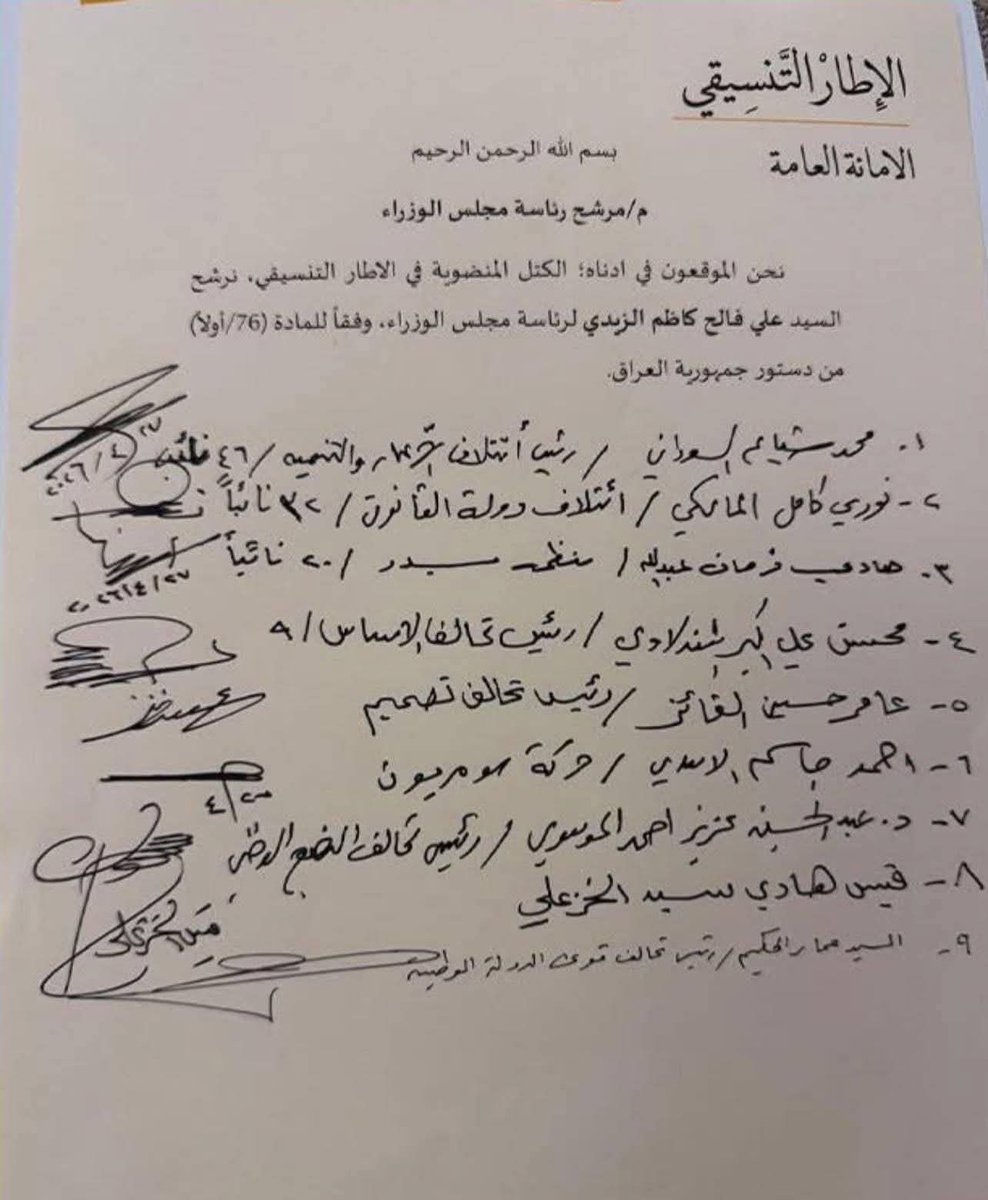 الإِطارُ التَّنسِيقي
الامانة العامة
بسم الله الرحمن الرحيم
م/مرشح رئاسة مجلس الوزراء
نحن الموقعون في ادناه؛ الكتل المنضوية في الاطار التنسيقي، نرشح
السيد علي فالح كاظم الزيدي لرئاسة مجلس الوزراء، وفقاً للمادة (76/أولاً)
من دستور جمهورية العراق.
١. محمد شياع السوداني / رئيس أئتلاف الاعمار والتنمية / ٤٦ نائب
٢٠٢٦/٤/٢٧
٢- نوري كامل المالكي / ائتلاف دولة القانون / ٣٢ نائباً
٣. هادي فرحان عبدالله / منظمة بدر / ٢٠ نائباً
٢٠٢٦/٤/٢٧
٤- محسن علي اكبر / رئيس تحالف الاساس / ٩
٥- عامر حسين الفائز / رئيس تحالف تصميم
٦- احمد جاسم الاسدي / حركة سومريون
٧- د. عبد الحسين عزيز احمد الموسوي / رئيس تحالف النهج الوطني
٨- قيس هادي سيد الخزعلي
قيس الخزعلي
٩- السيد عمار الحكيم / رئيس تحالف قوى الدولة الوطنية